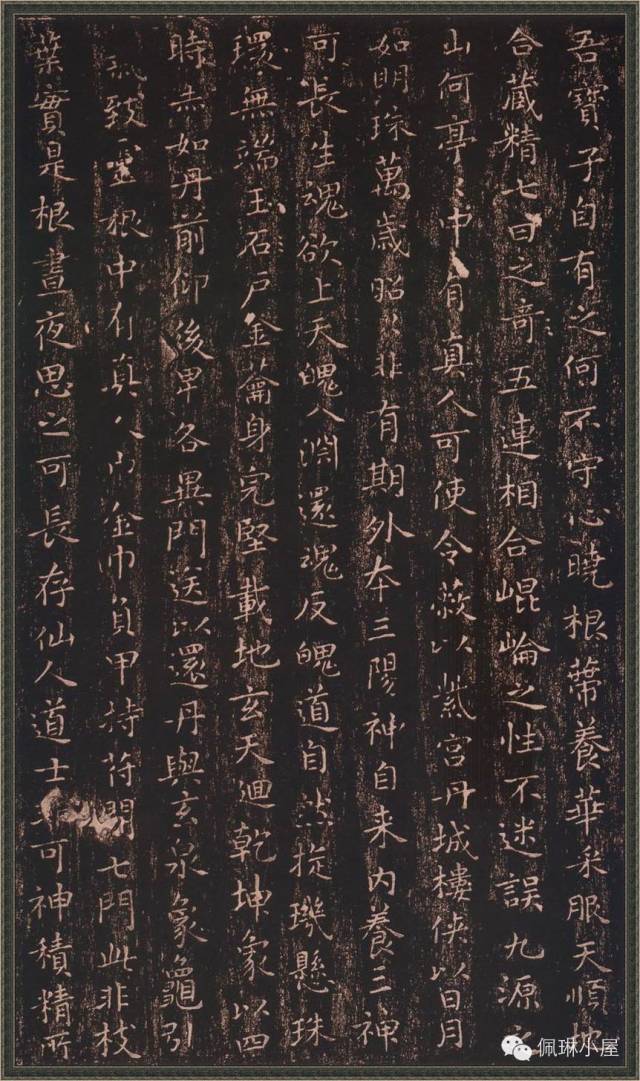 吾寶子自有之何不守心曉根蔕養華采服天順地
合藏精七日之奇五連相合崐崘之性不迷誤九源之
山何亭〻中有真人可使令蔽以紫宮丹城樓俠以日月
如明珠萬歲昭〻非有期外本三陽神自来內養三神
可長生魂欲上天魄入淵還魂反魄道自然㨁璣懸珠
環無端玉石戶金籥身完堅載地玄天迴乾坤象以四
時赤如丹前仰後卑各異門送以還丹與玄泉象龜引
氣致靈根中有真人巾金巾負甲持符開七門此非枝
葉實是根晝夜思之可長存仙人道士非可神積精所
佩琳小屋